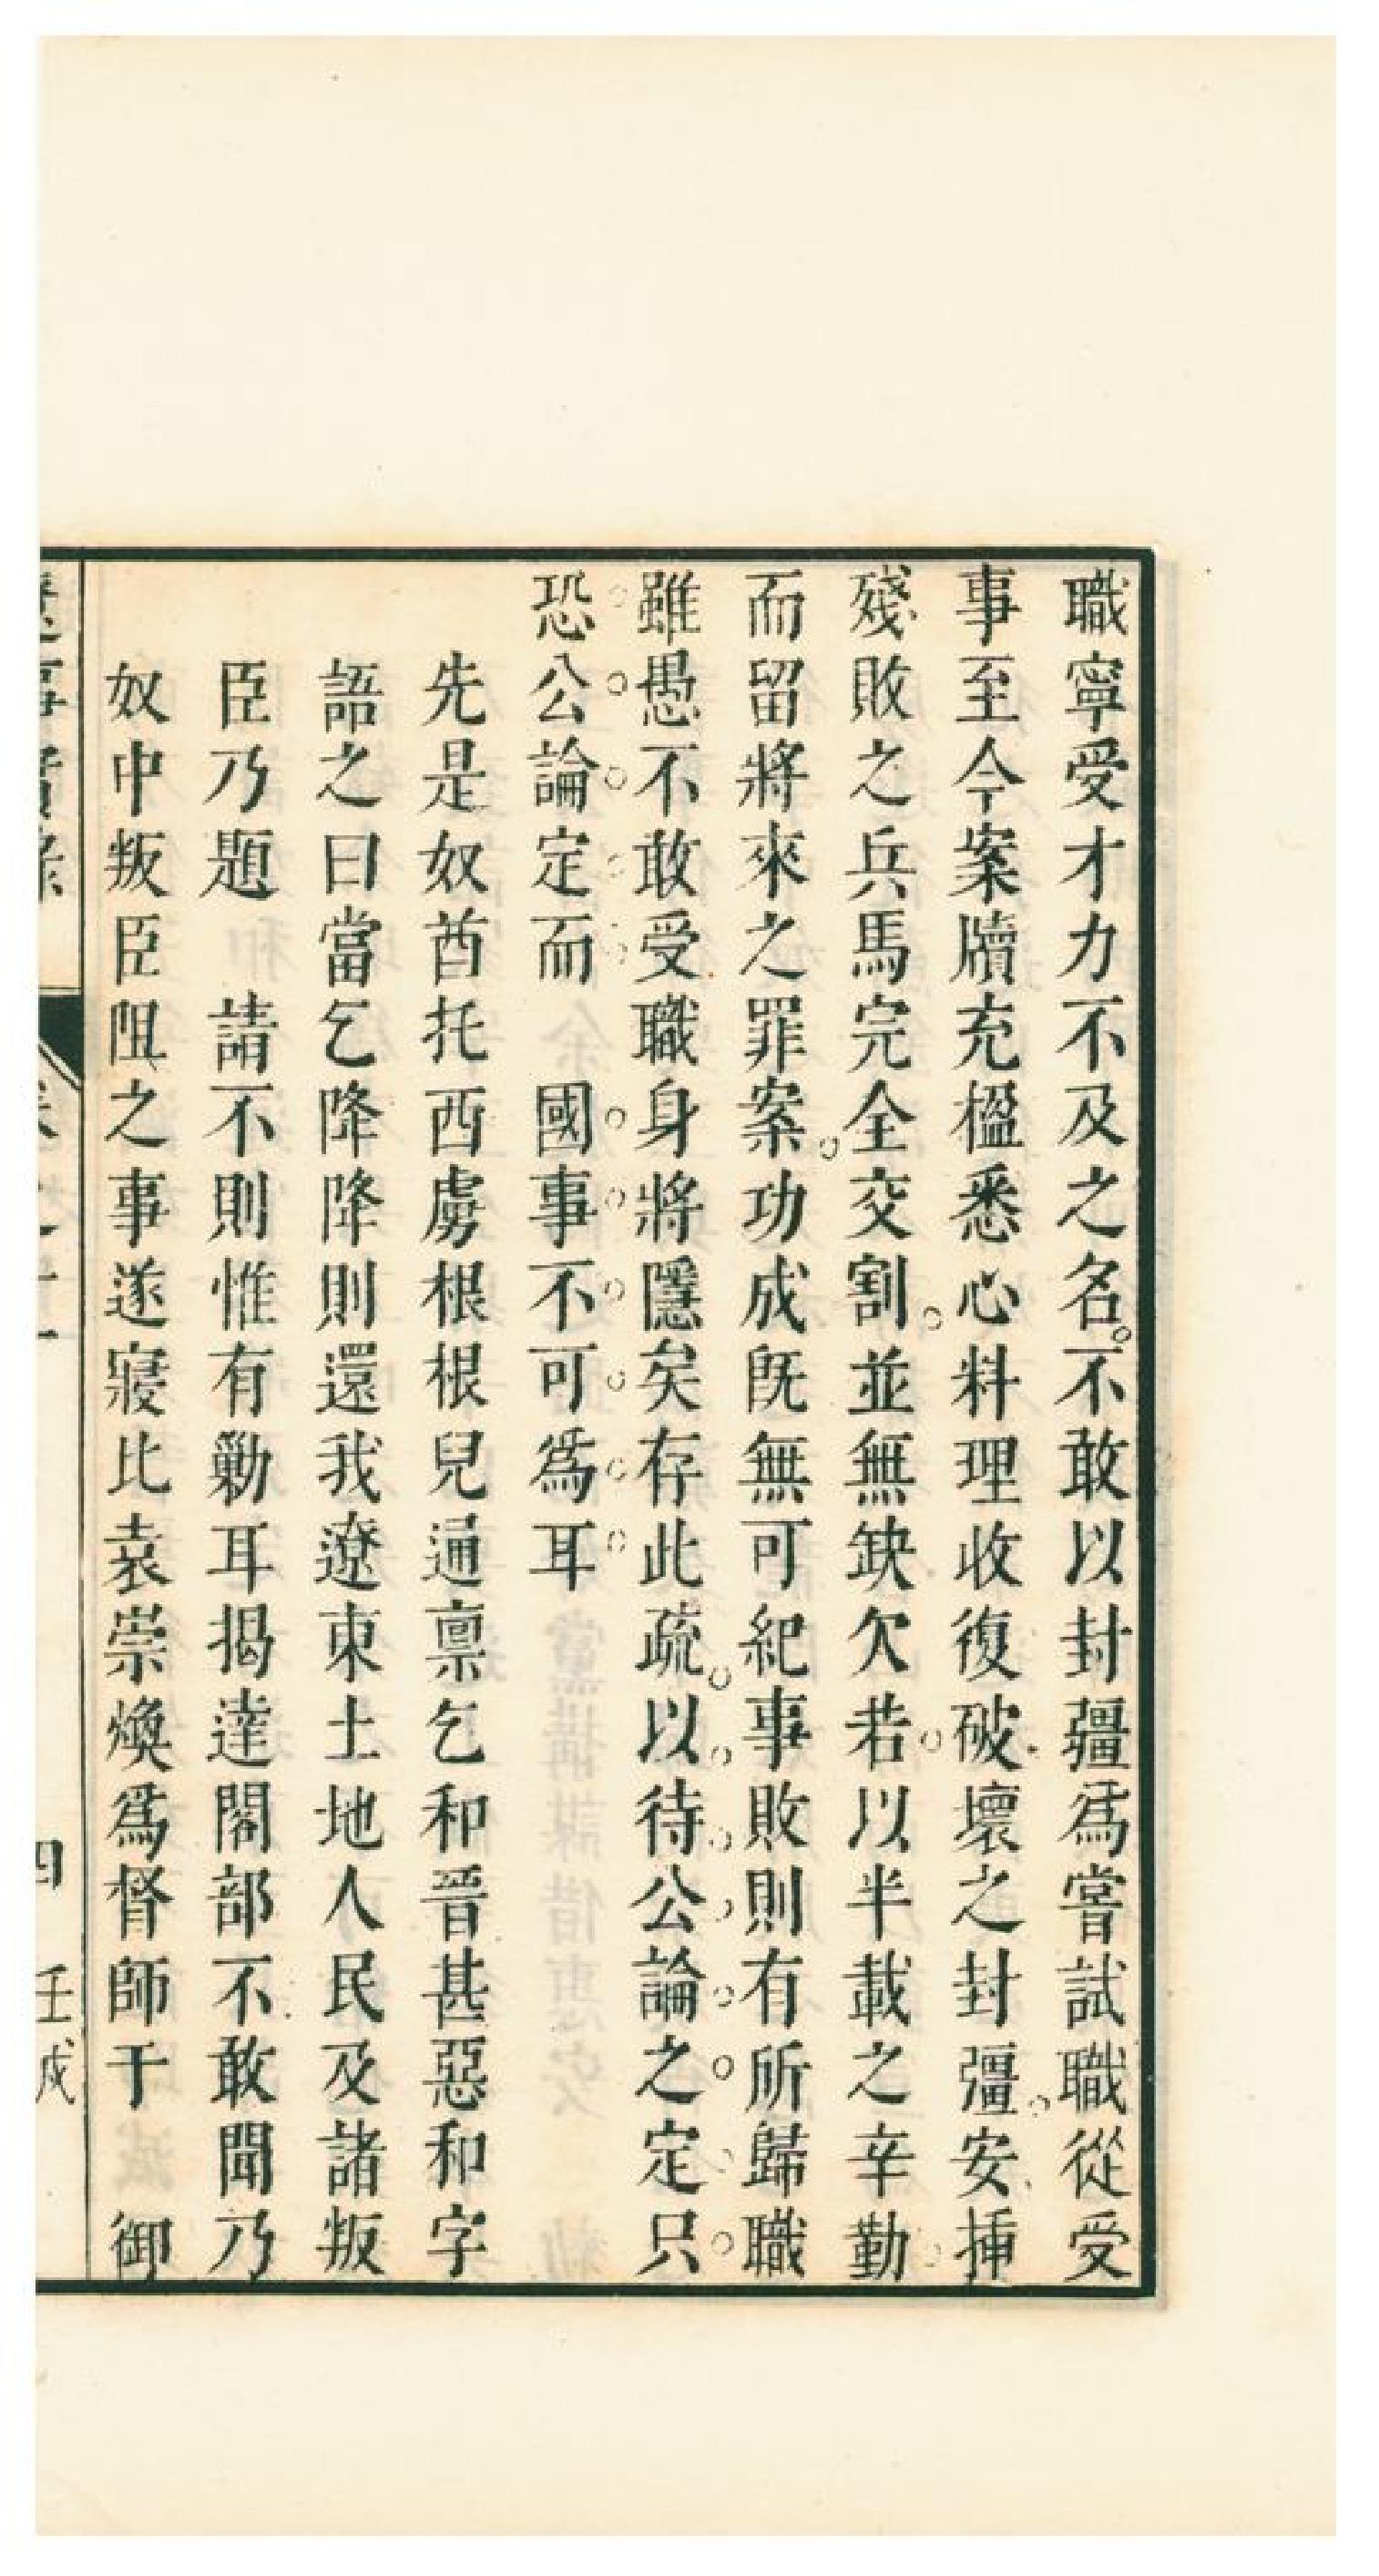 職寧受才力不及之名。不敢以封疆爲嘗試職從受
事至今案牘充楹悉心料理收復破壞之封疆。安揷
殘敗之兵馬完全交割。並無缺欠若以半載之辛勤
而留將來之罪案。功成旣無可紀事敗則有所歸職
雖愚不敢受職身將隱矣存此疏以待公論之定只
恐公論定而　國事不可爲耳
先是奴酋托西虜根根兒通稟乞和晉甚惡和字
語之曰當乞降降則還我遼東土地人民及諸叛
臣乃題　請不則惟有勦耳揭達閣部不敢聞乃
奴中叛臣阻之事遂寢比袁崇煥爲督師于　御
四　壬戌